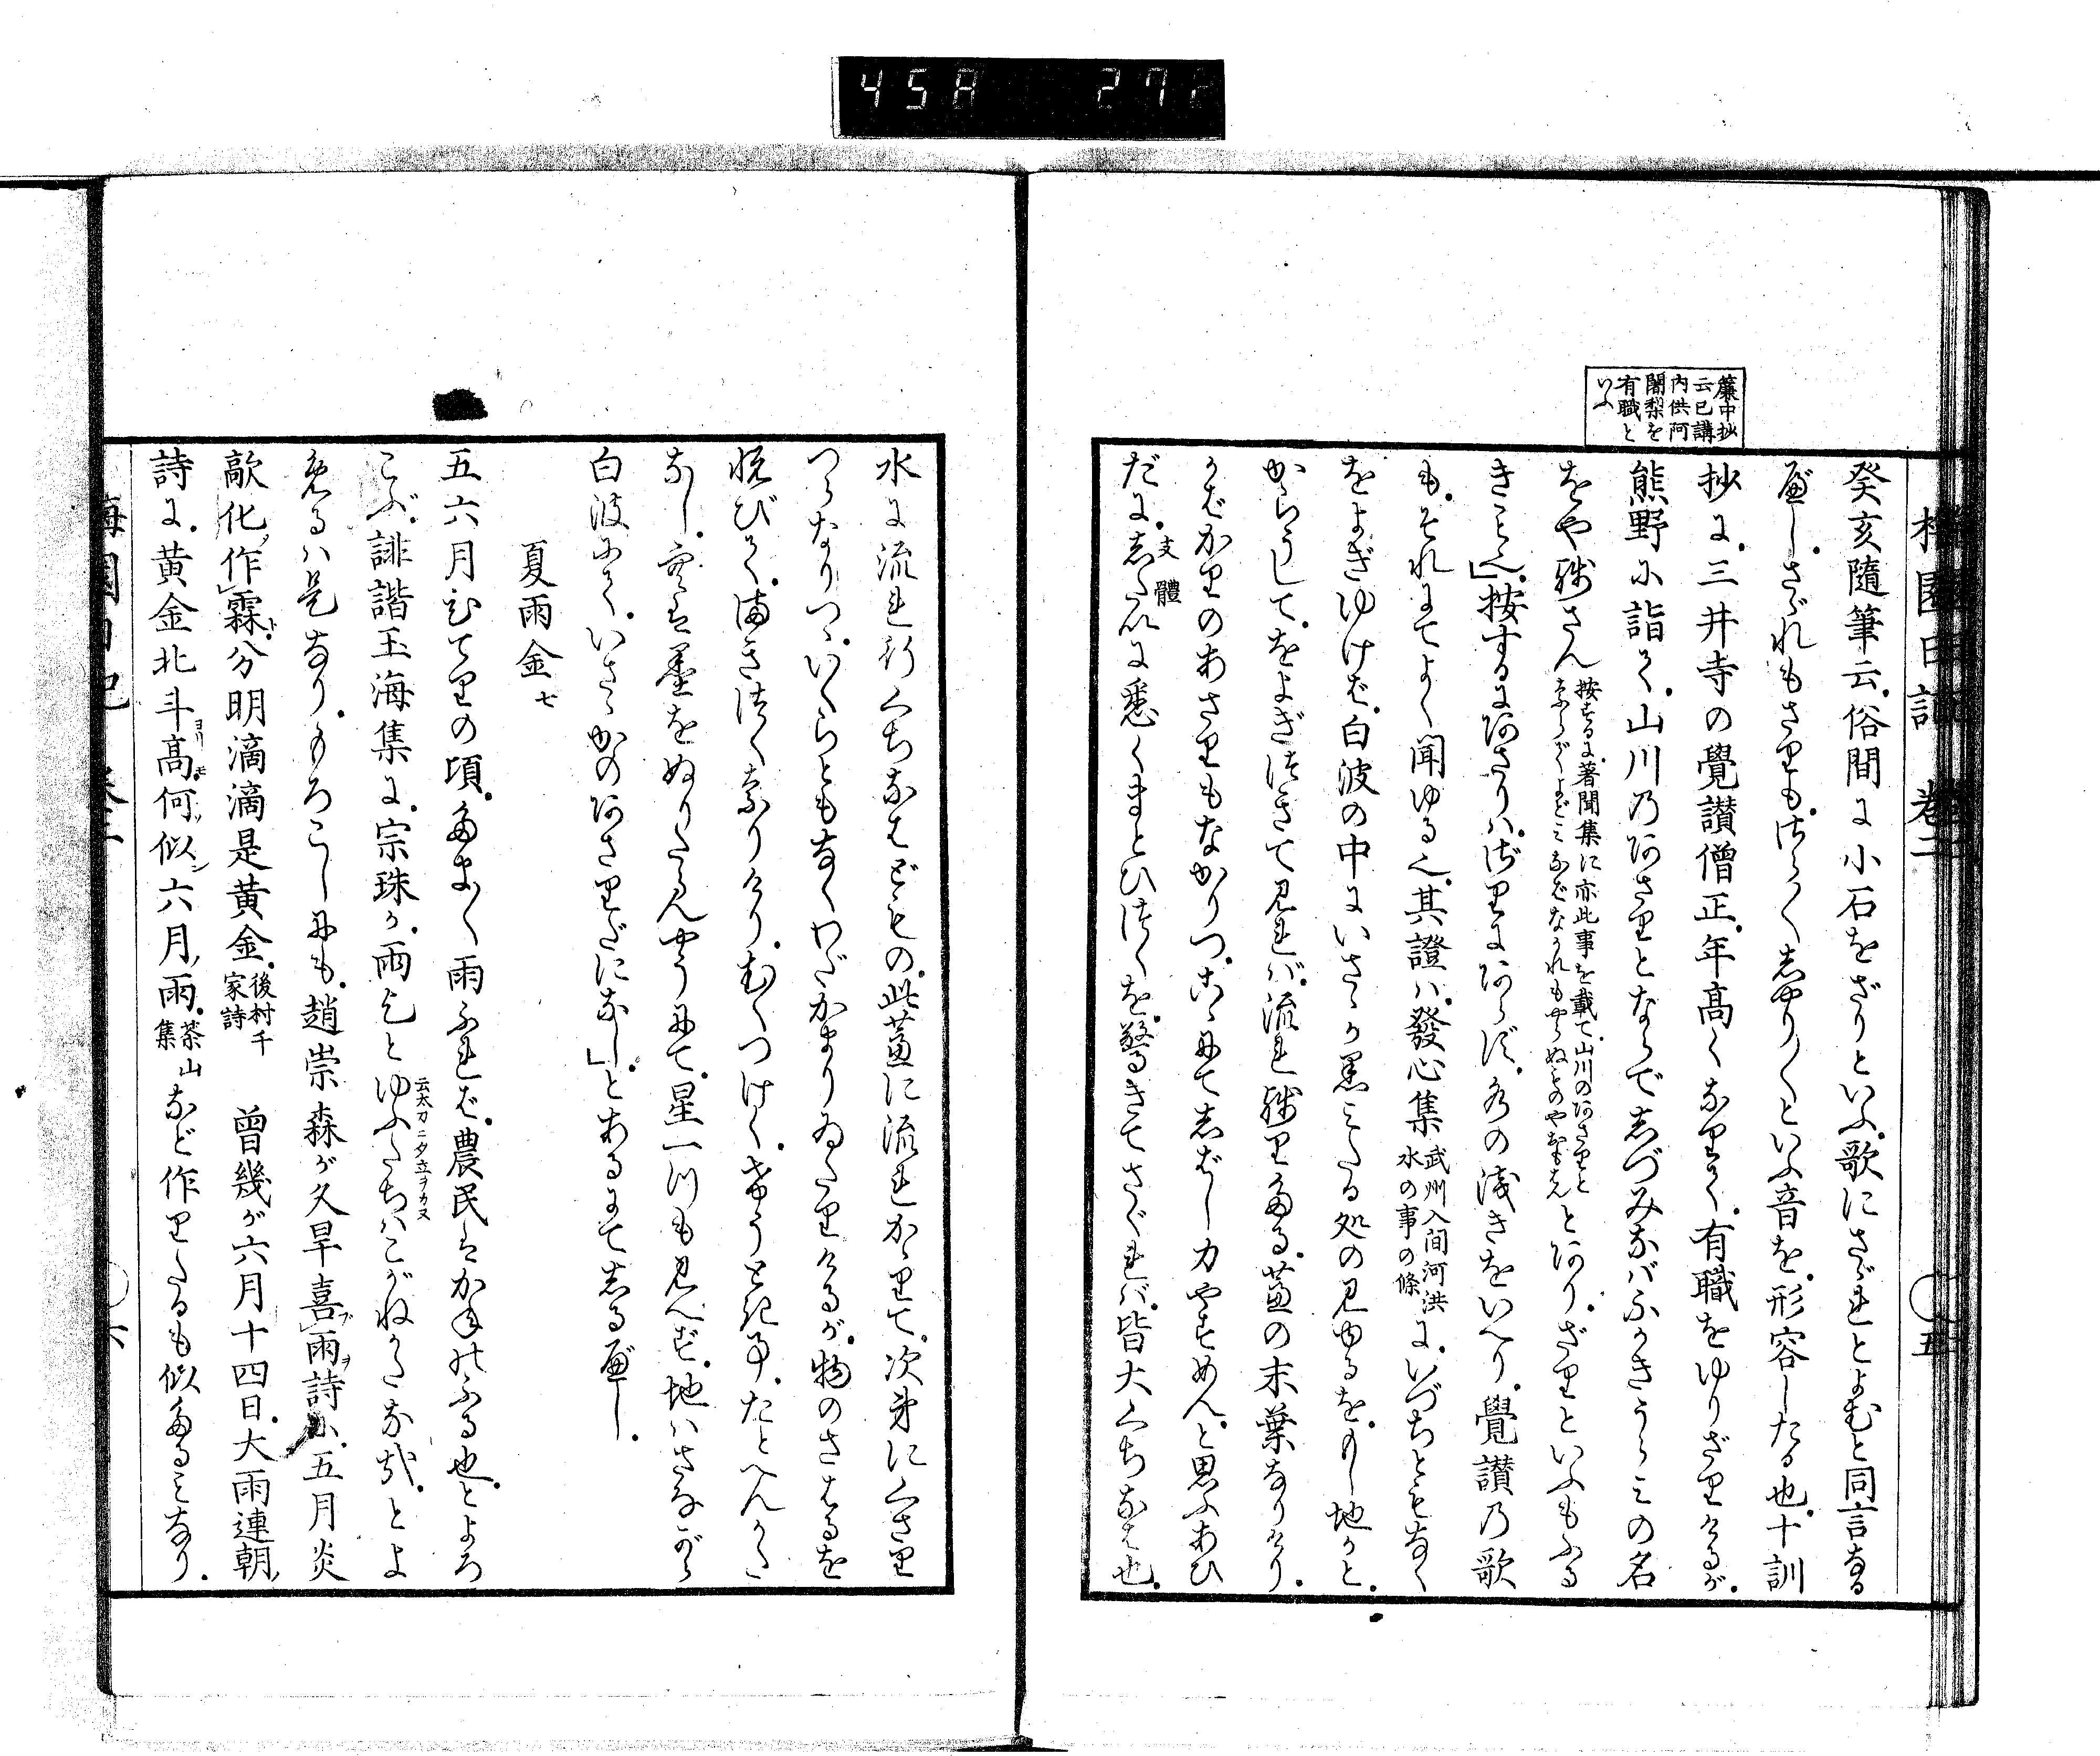 458 272
簾中抄
云已講
内供阿
闍梨を
有職と
いふ
梅園日記 卷二 五
癸亥隨筆云。俗間に小石をざりといふ。歌にさゞれとよむと同言なる
べし。さゞれもさりも。
抄に。三井寺の覺讃僧正。年高くなりて。有職をゆりざりけるが。
熊野に詣て。山川のあさりとならでしづみなばふかきうらみの名
をや殘さん 按ずるに。著聞集に亦此事を載て。山川のあさりと
ならでよどみなば とあり。ざりといふもふる
きこと也」按するにあさりは。ざりにあらず。水の淺きをいへり。覺讃の歌
も。それにてよく聞ゆる也。其證は。發心集 武州入間河洪
水の事の條 に。いづちともなく
をよぎゆけば。白波の中にいさゝか黒みたる処の見ゆるを。もし地かと。
からうして。をよぎつきて見れば。流れ殘りたる。蘆の末葉なりけり。
かばかりのあさりもなかりつ。こゝにてしばし力やすめん。と思ふあひ
だに。したい 支體 に悉くまとひつくを。驚きてさぐれば。皆大くちなは也。
水に流れ行くちなはどもの。此蘆に流れかゝりて。次第にくさり
つらなりつゝ。いくらともなくわだかまりゐたりけるが。物のさはるを
悦びて。まきつくなりけり。むくつけく。けうとき事。たとへんかた
なし。空は墨をぬりたらんやうにて。星一つも見えず。地はさながら
白波にて。いさゝかのあさりだになし」とあるにて しるべし。
夏雨金 七
五六月ひでりの頃。たま〳〵雨ふれば。農民はかねのふる也。とよろ
こぶ。誹諧玉海集に。宗珠が。雨乞とゆふたちはこがねかたな哉。とよ 云太刀ニ夕立ヲカヌ
めるは是なり。もろこしにも。趙崇森が久旱喜雨詩に。五月炎
歊化作霖。分明滴滴是黄金。 後村千
家詩 曾幾が六月十四日。大雨連朝
詩に。黄金北斗高何似六月雨。 茶山
集 など作りたるも似たることなり。
梅園日記 卷二 六